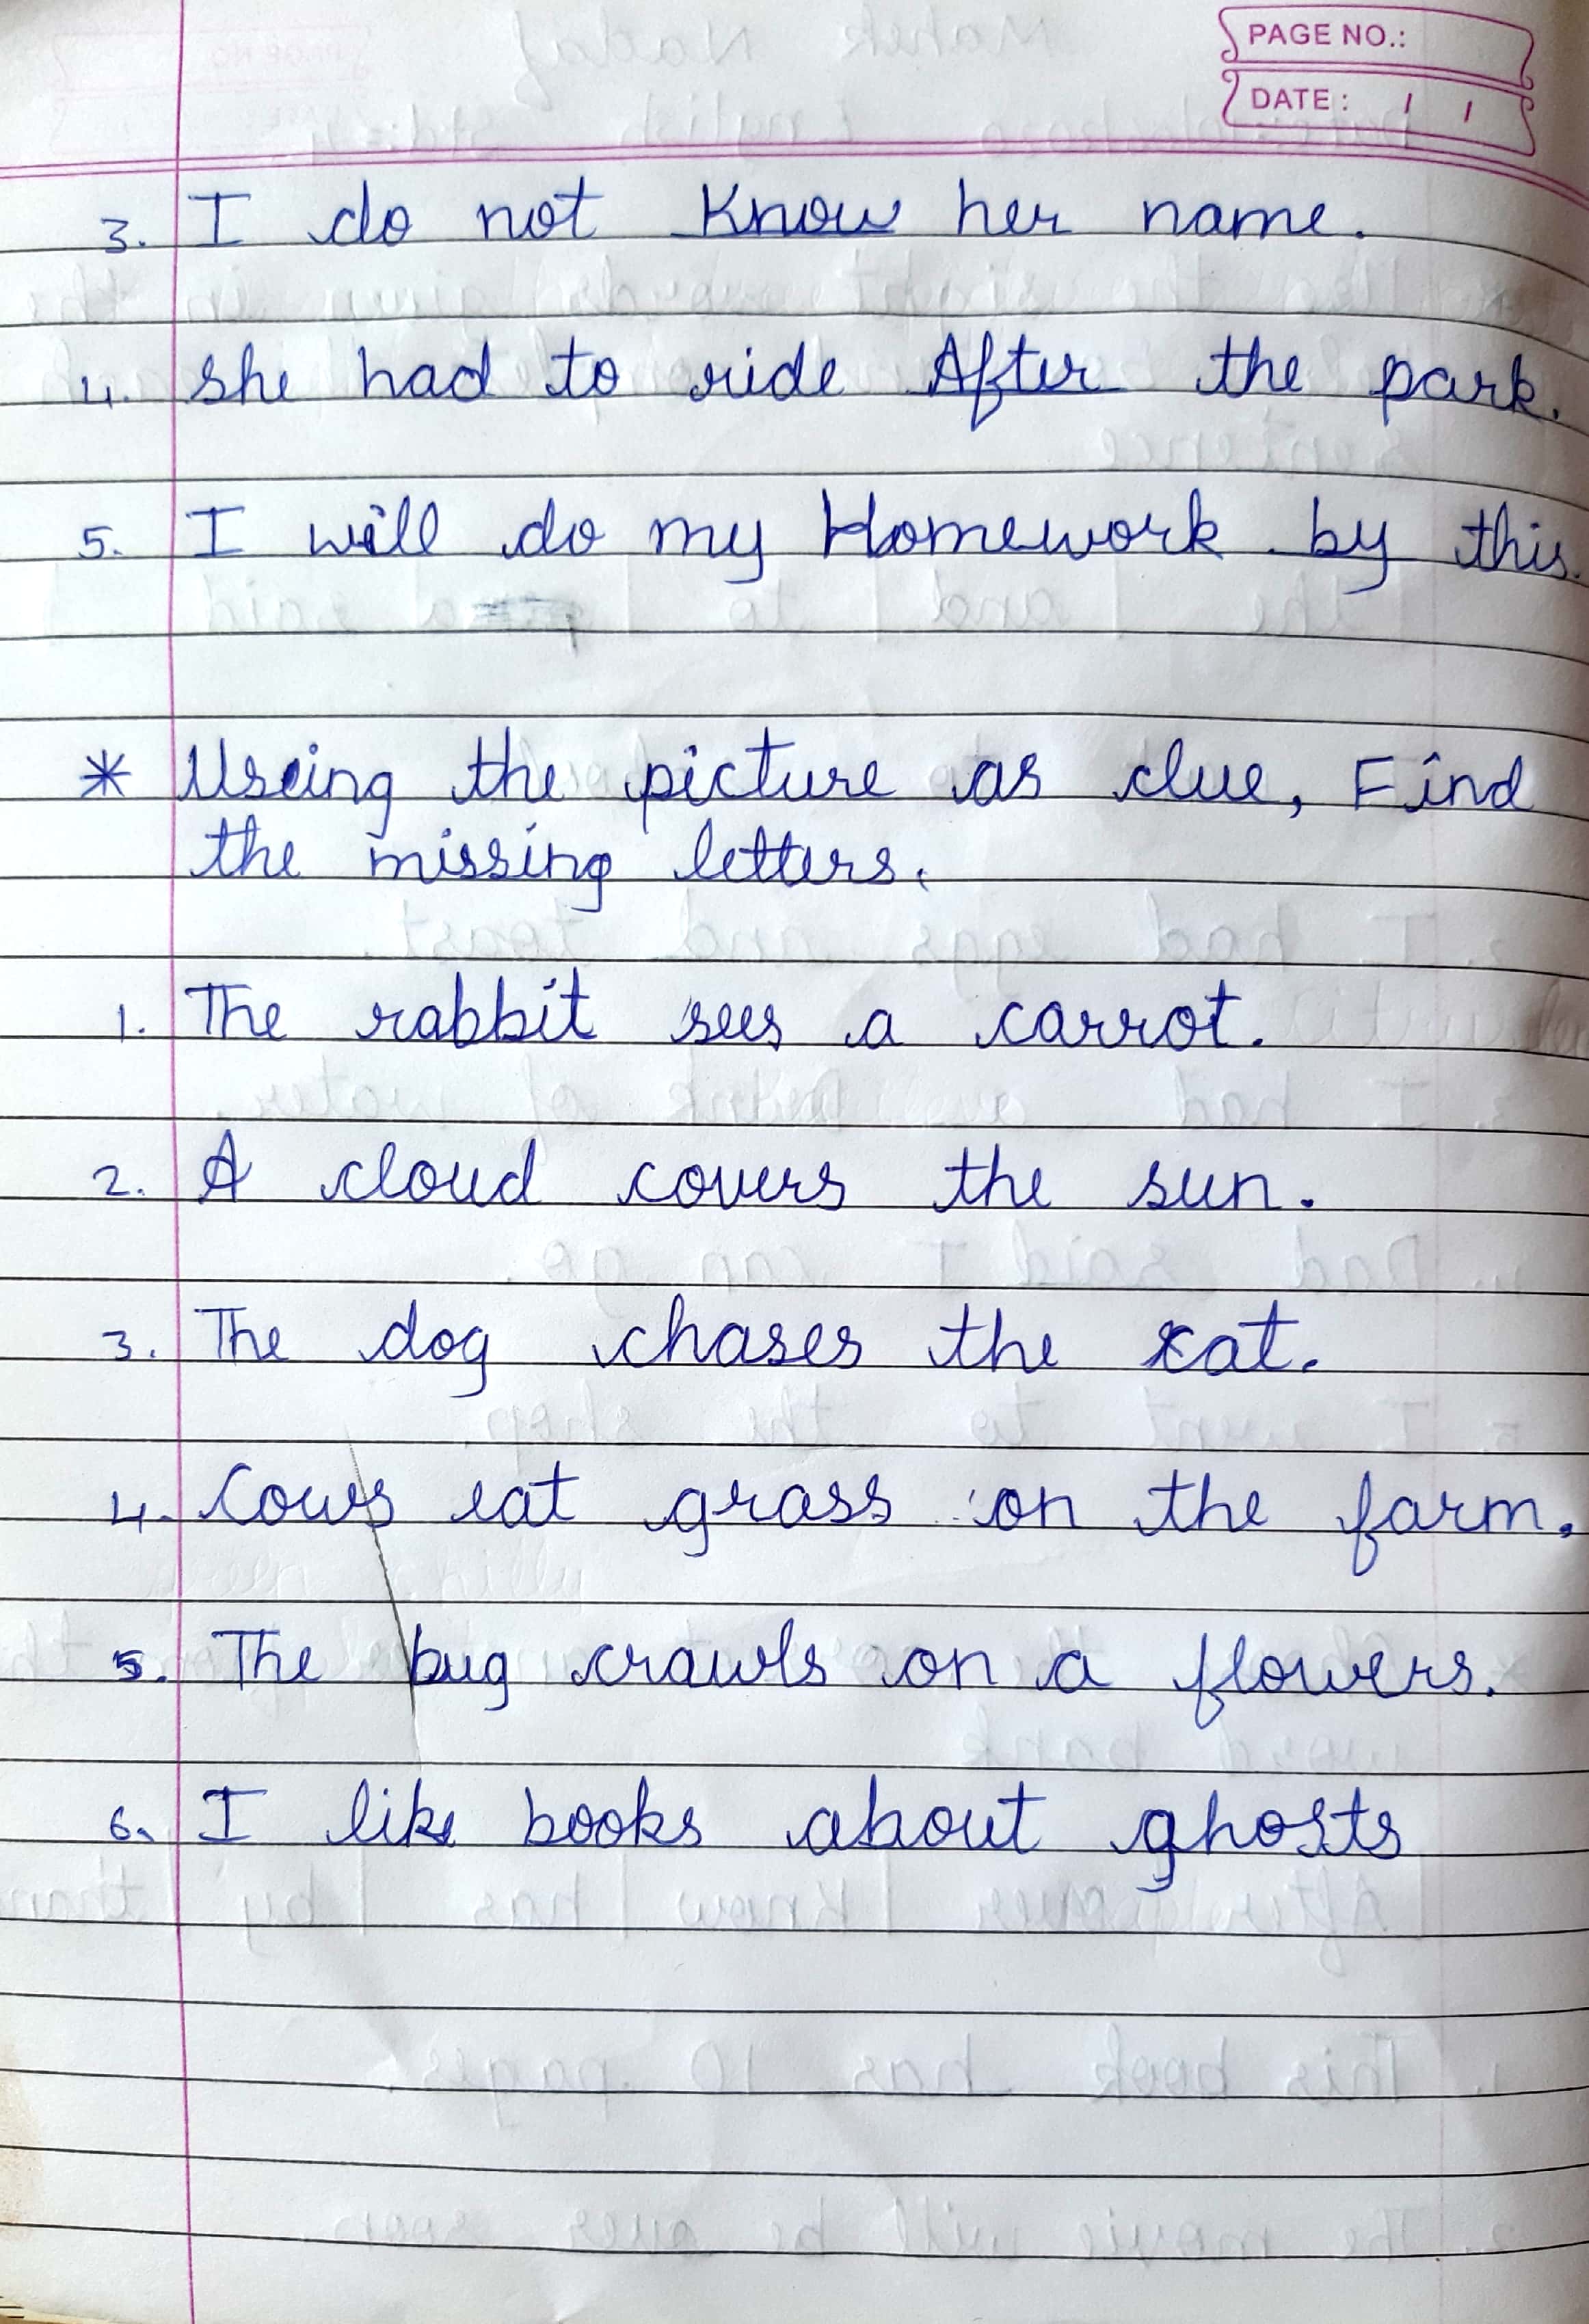 PAGE NO.:
DATE: / /
3. I do not Know her name.
4. she had to ride After the park.
5. I will do my Homework by this.
* Useing the picture as clue, Find
the missing letters.
1. The rabbit sees a carrot.
2. A cloud covers the sun.
3. The dog chases the cat.
4. Cows eat grass on the farm.
5. The bug crawls on a flowers.
6. I like books about ghosts